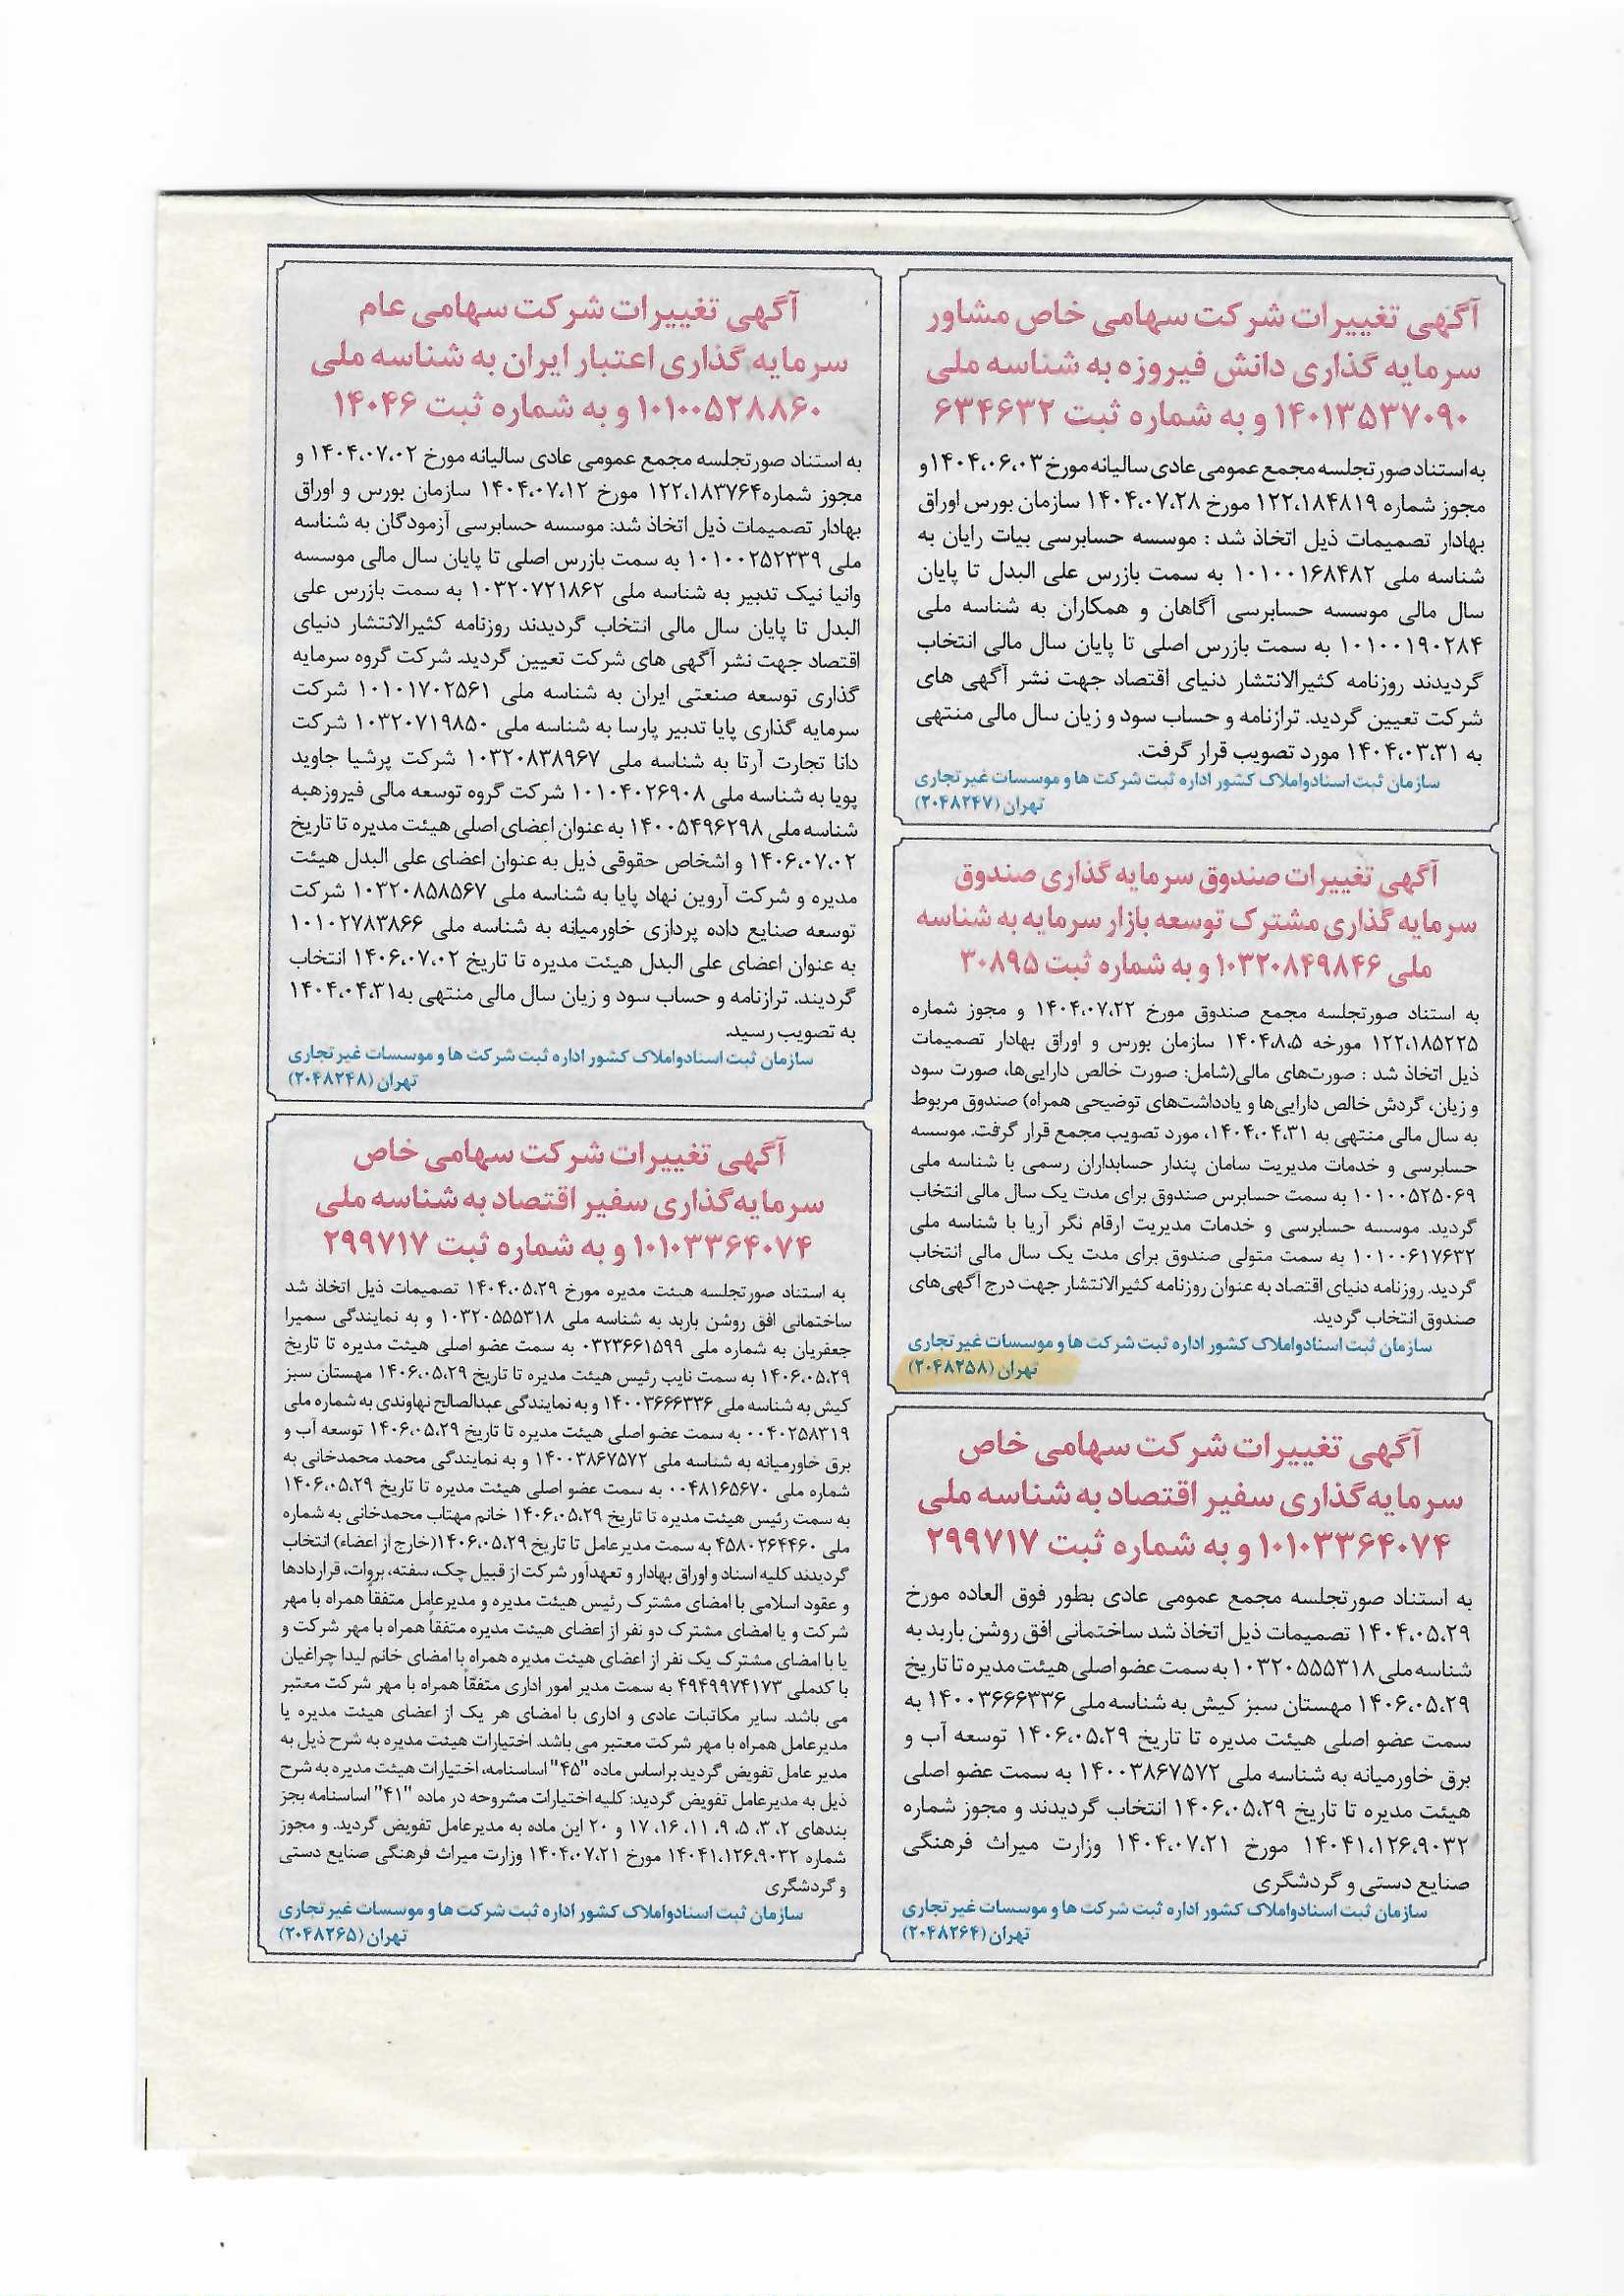 آگهی تغییرات شرکت سهامی خاص مشاور
سرمایه گذاری دانش فیروزه به شناسه ملی
۱۴۰۱۳۵۳۷۰۹۰ و به شماره ثبت ۶۳۴۶۳۲
به استناد صورتجلسه مجمع عمومی عادی سالیانه مورخ ۱۴۰۴،۰۶،۰۳ و
مجوز شماره ۱۲۲،۱۸۴۸۱۹ مورخ ۱۴۰۴،۰۷،۲۸ سازمان بورس اوراق
بهادار تصمیمات ذیل اتخاذ شد : موسسه حسابرسی بیات رایان به
شناسه ملی ۱۰۱۰۰۱۶۸۴۸۲ به سمت بازرس علی البدل تا پایان
سال مالی موسسه حسابرسی آگاهان و همکاران به شناسه ملی
۱۰۱۰۰۱۹۰۲۸۴ به سمت بازرس اصلی تا پایان سال مالی انتخاب
گردیدند روزنامه کثیرالانتشار دنیای اقتصاد جهت نشر آگهی های
شرکت تعیین گردید. ترازنامه و حساب سود و زیان سال مالی منتهی
به ۱۴۰۴،۰۳،۳۱ مورد تصویب قرار گرفت.
سازمان ثبت اسنادواملاک کشور اداره ثبت شرکت ها و موسسات غیرتجاری
تهران (۲۰۴۸۲۴۷)
آگهی تغییرات صندوق سرمایه گذاری صندوق
سرمایه گذاری مشترک توسعه بازار سرمایه به شناسه
ملی ۱۰۳۲۰۸۴۹۸۴۶ و به شماره ثبت ۳۰۸۹۵
به استناد صورتجلسه مجمع صندوق مورخ ۱۴۰۴،۰۷،۲۲ و مجوز شماره
۱۲۲،۱۸۵۲۲۵ مورخه ۱۴۰۴،۸،۵ سازمان بورس و اوراق بهادار تصمیمات
ذیل اتخاذ شد : صورت‌های مالی(شامل: صورت خالص دارایی‌ها، صورت سود
و زیان، گردش خالص دارایی‌ها و یادداشت‌های توضیحی همراه) صندوق مربوط
به سال مالی منتهی به ۱۴۰۴،۰۴،۳۱، مورد تصویب مجمع قرار گرفت. موسسه
حسابرسی و خدمات مدیریت سامان پندار حسابداران رسمی با شناسه ملی
۱۰۱۰۰۵۲۵۰۶۹ به سمت حسابرس صندوق برای مدت یک سال مالی انتخاب
گردید. موسسه حسابرسی و خدمات مدیریت ارقام نگر آریا با شناسه ملی
۱۰۱۰۰۶۱۷۶۳۲ به سمت متولی صندوق برای مدت یک سال مالی انتخاب
گردید. روزنامه دنیای اقتصاد به عنوان روزنامه کثیرالانتشار جهت درج آگهی‌های
صندوق انتخاب گردید.
سازمان ثبت اسنادواملاک کشور اداره ثبت شرکت ها و موسسات غیرتجاری
تهران (۲۰۴۸۲۵۸)
آگهی تغییرات شرکت سهامی خاص
سرمایه‌گذاری سفیر اقتصاد به شناسه ملی
۱۰۱۰۳۳۶۴۰۷۴ و به شماره ثبت ۲۹۹۷۱۷
به استناد صورتجلسه مجمع عمومی عادی بطور فوق العاده مورخ
۱۴۰۴،۰۵،۲۹ تصمیمات ذیل اتخاذ شد ساختمانی افق روشن باربد به
شناسه ملی ۱۰۳۲۰۵۵۵۳۱۸ به سمت عضو اصلی هیئت مدیره تا تاریخ
۱۴۰۶،۰۵،۲۹ مهستان سبز کیش به شناسه ملی ۱۴۰۰۳۶۶۶۳۳۶ به
سمت عضو اصلی هیئت مدیره تا تاریخ ۱۴۰۶،۰۵،۲۹ توسعه آب و
برق خاورمیانه به شناسه ملی ۱۴۰۰۳۸۶۷۵۷۲ به سمت عضو اصلی
هیئت مدیره تا تاریخ ۱۴۰۶،۰۵،۲۹ انتخاب گردیدند و مجوز شماره
۱۴۰۴۱،۱۲۶،۹۰۳۲ مورخ ۱۴۰۴،۰۷،۲۱ وزارت میراث فرهنگی
صنایع دستی و گردشگری
سازمان ثبت اسنادواملاک کشور اداره ثبت شرکت ها و موسسات غیرتجاری
تهران (۲۰۴۸۲۶۴)
آگهی تغییرات شرکت سهامی عام
سرمایه گذاری اعتبار ایران به شناسه ملی
۱۰۱۰۰۵۲۸۸۶۰ و به شماره ثبت ۱۴۰۴۶
به استناد صورتجلسه مجمع عمومی عادی سالیانه مورخ ۱۴۰۴،۰۷،۰۲ و
مجوز شماره۱۲۲،۱۸۳۷۶۴ مورخ ۱۴۰۴،۰۷،۱۲ سازمان بورس و اوراق
بهادار تصمیمات ذیل اتخاذ شد: موسسه حسابرسی آزمودگان به شناسه
ملی ۱۰۱۰۰۲۵۲۳۳۹ به سمت بازرس اصلی تا پایان سال مالی موسسه
وانیا نیک تدبیر به شناسه ملی ۱۰۳۲۰۷۲۱۸۶۲ به سمت بازرس علی
البدل تا پایان سال مالی انتخاب گردیدند روزنامه کثیرالانتشار دنیای
اقتصاد جهت نشر آگهی های شرکت تعیین گردید. شرکت گروه سرمایه
گذاری توسعه صنعتی ایران به شناسه ملی ۱۰۱۰۱۷۰۲۵۶۱ شرکت
سرمایه گذاری پایا تدبیر پارسا به شناسه ملی ۱۰۳۲۰۷۱۹۸۵۰ شرکت
دانا تجارت آرتا به شناسه ملی ۱۰۳۲۰۸۳۸۹۶۷ شرکت پرشیا جاوید
پویا به شناسه ملی ۱۰۱۰۴۰۲۶۹۰۸ شرکت گروه توسعه مالی فیروزهبه
شناسه ملی ۱۴۰۰۵۴۹۶۲۹۸ به عنوان اعضای اصلی هیئت مدیره تا تاریخ
۱۴۰۶،۰۷،۰۲ و اشخاص حقوقی ذیل به عنوان اعضای علی البدل هیئت
مدیره و شرکت آروین نهاد پایا به شناسه ملی ۱۰۳۲۰۸۵۸۵۶۷ شرکت
توسعه صنایع داده پردازی خاورمیانه به شناسه ملی ۱۰۱۰۲۷۸۳۸۶۶
به عنوان اعضای علی البدل هیئت مدیره تا تاریخ ۱۴۰۶،۰۷،۰۲ انتخاب
گردیند. ترازنامه و حساب سود و زیان سال مالی منتهی به۱۴۰۴،۰۴،۳۱
به تصویب رسید.
سازمان ثبت اسنادواملاک کشور اداره ثبت شرکت ها و موسسات غیرتجاری
تهران (۲۰۴۸۲۴۸)
آگهی تغییرات شرکت سهامی خاص
سرمایه‌گذاری سفیر اقتصاد به شناسه ملی
۱۰۱۰۳۳۶۴۰۷۴ و به شماره ثبت ۲۹۹۷۱۷
به استناد صورتجلسه هیئت مدیره مورخ ۱۴۰۴،۰۵،۲۹ تصمیمات ذیل اتخاذ شد
ساختمانی افق روشن باربد به شناسه ملی ۱۰۳۲۰۵۵۵۳۱۸ و به نمایندگی سمیرا
جعفریان به شماره ملی ۰۳۲۳۶۶۱۵۹۹ به سمت عضو اصلی هیئت مدیره تا تاریخ
۱۴۰۶،۰۵،۲۹ به سمت نایب رئیس هیئت مدیره تا تاریخ ۱۴۰۶،۰۵،۲۹ مهستان سبز
کیش به شناسه ملی ۱۴۰۰۳۶۶۶۳۳۶ و به نمایندگی عبدالصالح نهاوندی به شماره ملی
۰۰۴۰۲۵۸۳۱۹ به سمت عضو اصلی هیئت مدیره تا تاریخ ۱۴۰۶،۰۵،۲۹ توسعه آب و
برق خاورمیانه به شناسه ملی ۱۴۰۰۳۸۶۷۵۷۲ و به نمایندگی محمد محمدخانی به
شماره ملی ۰۰۴۸۱۶۵۶۷۰ به سمت عضو اصلی هیئت مدیره تا تاریخ ۱۴۰۶،۰۵،۲۹
به سمت رئیس هیئت مدیره تا تاریخ ۱۴۰۶،۰۵،۲۹ خانم مهتاب محمدخانی به شماره
ملی ۴۵۸۰۲۶۴۴۶۰ به سمت مدیرعامل تا تاریخ ۱۴۰۶،۰۵،۲۹(خارج از اعضاء) انتخاب
گردیدند کلیه اسناد و اوراق بهادار و تعهدآور شرکت از قبیل چک، سفته، بروات، قراردادها
و عقود اسلامی با امضای مشترک رئیس هیئت مدیره و مدیرعامل متفقاً همراه با مهر
شرکت و یا امضای مشترک دو نفر از اعضای هیئت مدیره متفقاً همراه با مهر شرکت و
یا با امضای مشترک یک نفر از اعضای هیئت مدیره همراه با امضای خانم لیدا چراغیان
با کدملی ۴۹۴۹۹۷۴۱۷۳ به سمت مدیر امور اداری متفقاً همراه با مهر شرکت معتبر
می باشد. سایر مکاتبات عادی و اداری با امضای هر یک از اعضای هیئت مدیره یا
مدیرعامل همراه با مهر شرکت معتبر می باشد. اختیارات هیئت مدیره به شرح ذیل به
مدیر عامل تفویض گردید براساس ماده "۴۵" اساسنامه، اختیارات هیئت مدیره به شرح
ذیل به مدیرعامل تفویض گردید: کلیه اختیارات مشروحه در ماده "۴۱" اساسنامه بجز
بندهای ۲، ۳، ۵، ۹، ۱۱، ۱۶، ۱۷ و ۲۰ این ماده به مدیرعامل تفویض گردید. و مجوز
شماره ۱۴۰۴۱،۱۲۶،۹۰۳۲ مورخ ۱۴۰۴،۰۷،۲۱ وزارت میراث فرهنگی صنایع دستی
و گردشگری
سازمان ثبت اسنادواملاک کشور اداره ثبت شرکت ها و موسسات غیرتجاری
تهران (۲۰۴۸۲۶۵)